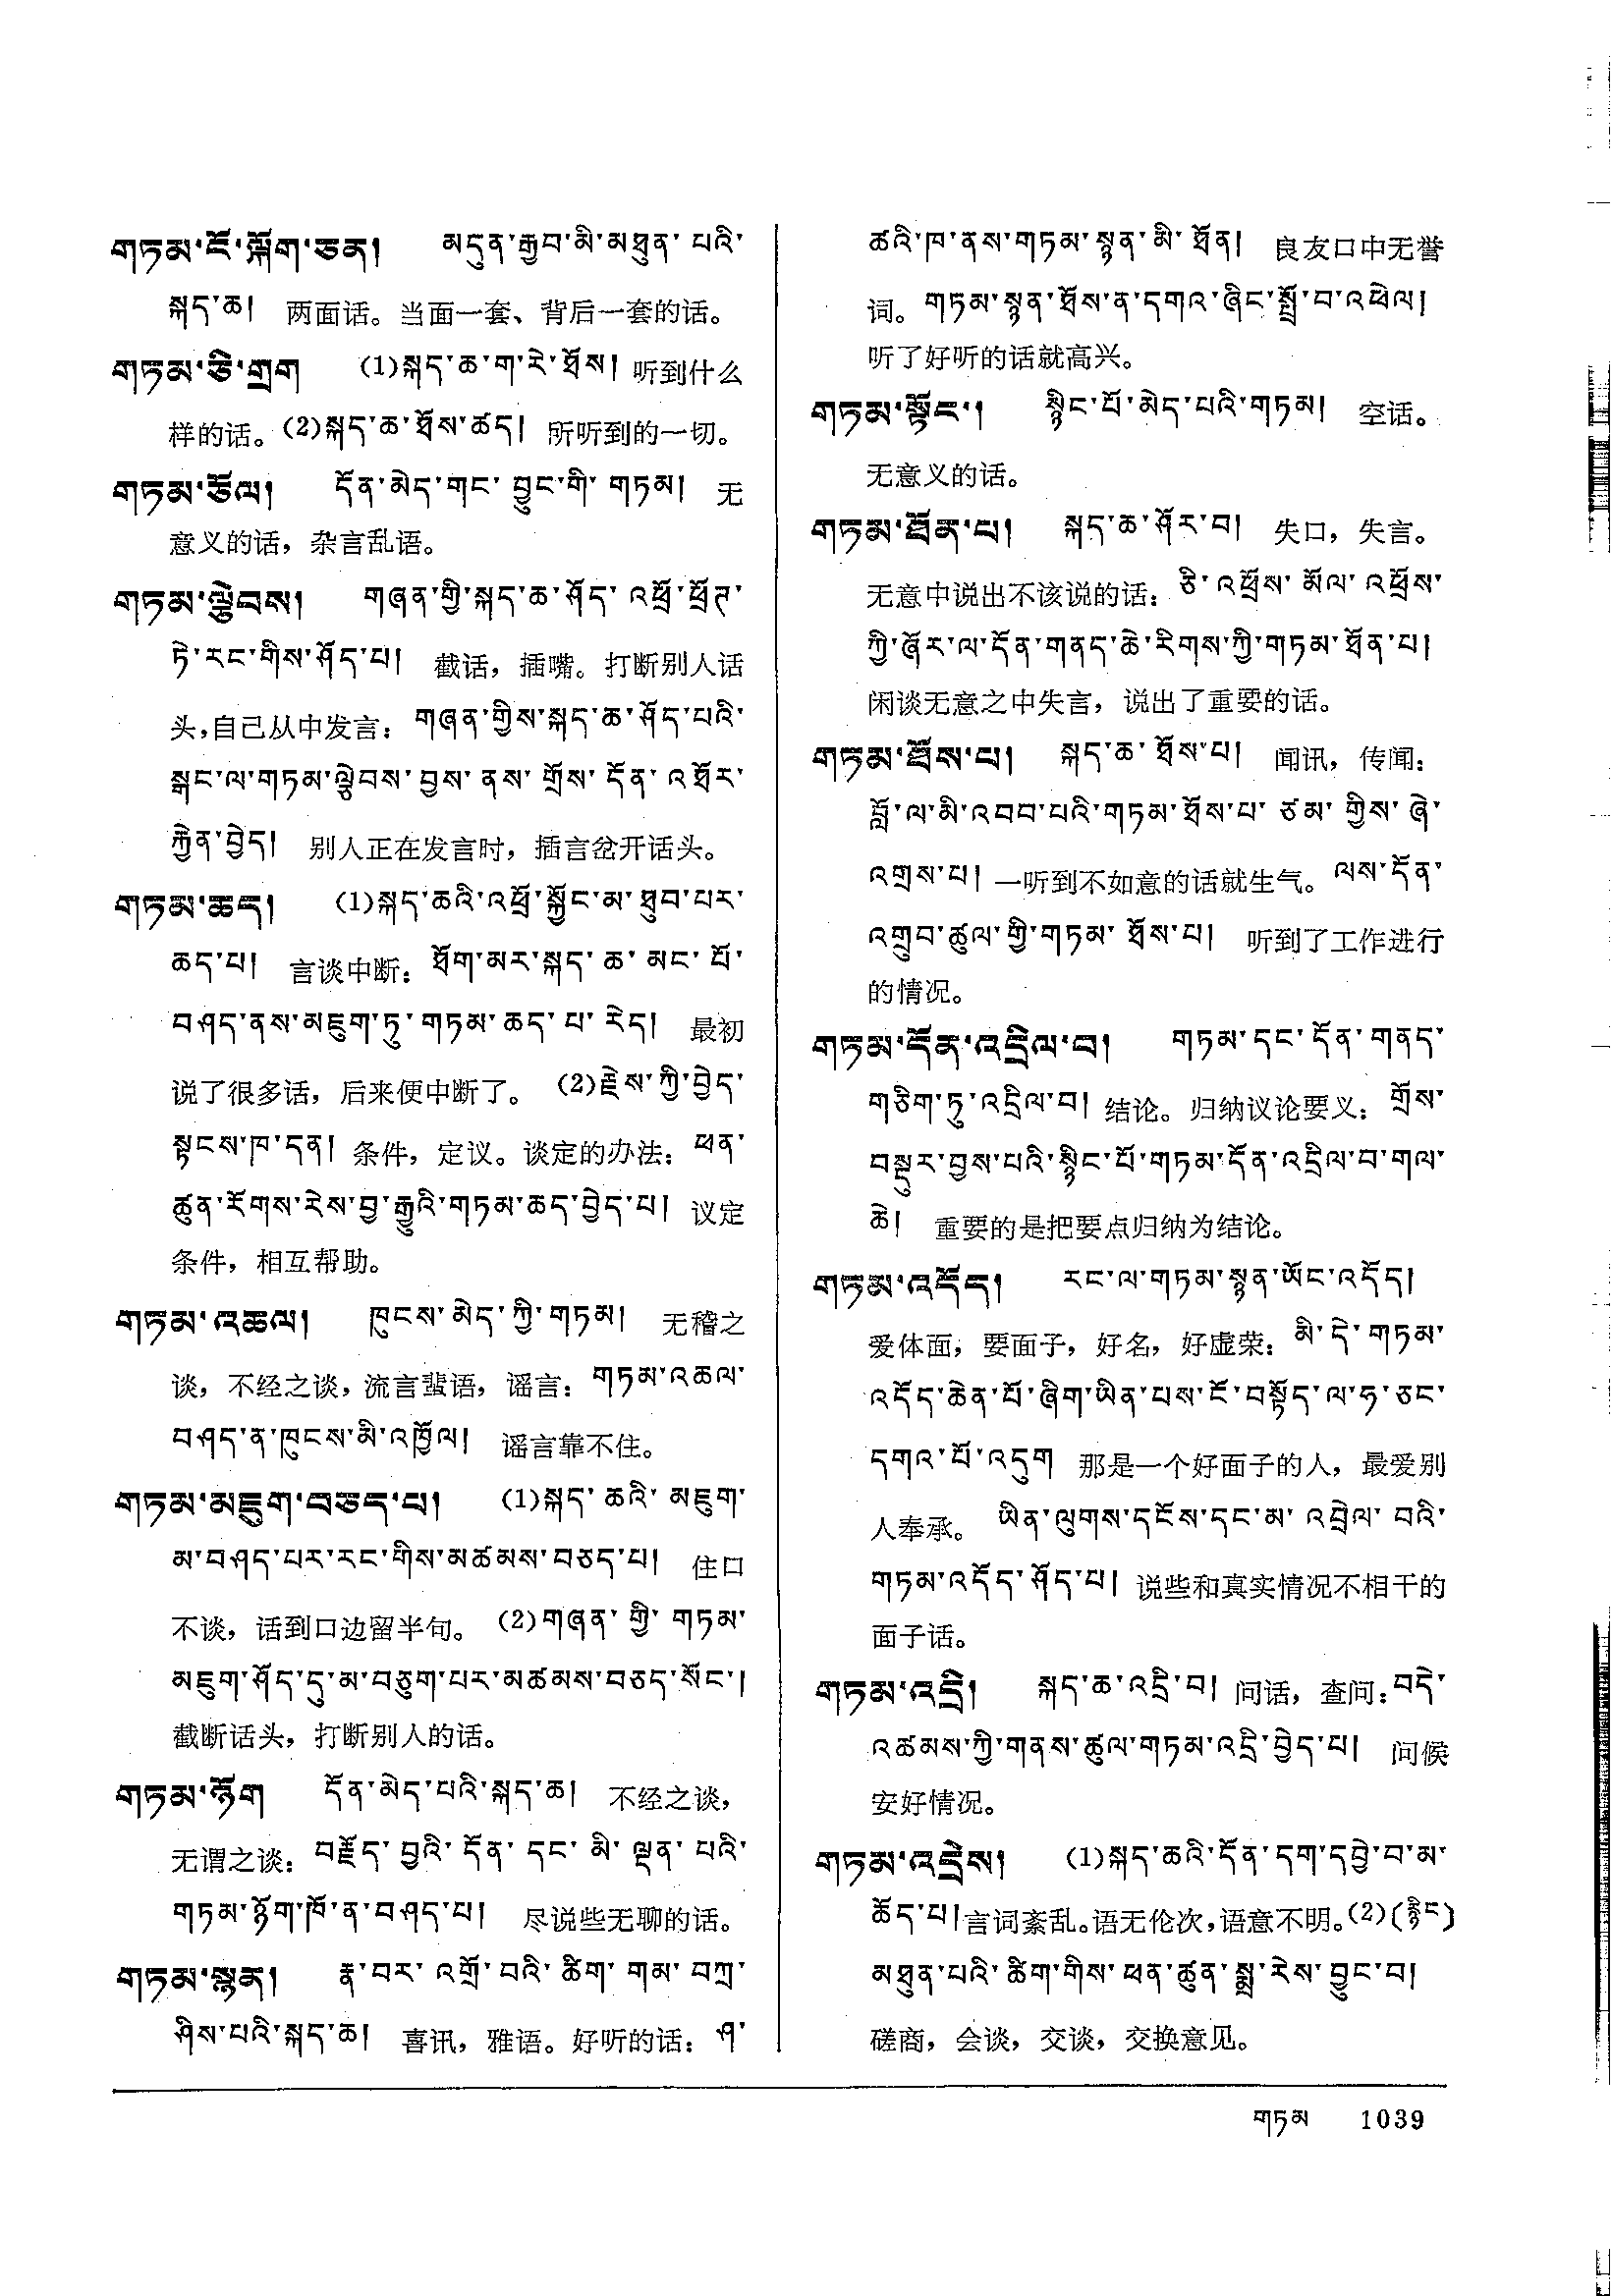 གཏམ་ངོ་ལྐོག་ཅན། མདུན་རྒྱབ་མི་མཐུན་པའི་
སྐད་ཆ། 两面话。当面一套、背后一套的话。
གཏམ་ཅི་གྲག (1)སྐད་ཆ་ག་རེ་ཐོས། 听到什么
样的话。(2)སྐད་ཆ་ཐོས་ཚད། 所听到的一切。
གཏམ་ཅོལ། དོན་མེད་གང་བྱུང་གི་གཏམ། 无
意义的话，杂言乱语。
གཏམ་ལྕེབས། གཞན་གྱི་སྐད་ཆ་ཤོད་འཕྲོ་ཕྲོཊ་
ཏེ་རང་གིས་ཤོད་པ། 截话，插嘴。打断别人话
头，自己从中发言：གཞན་གྱིས་སྐད་ཆ་ཤོད་པའི་
སྒང་ལ་གཏམ་ལྕེབས་བྱས་ནས་གྲོས་དོན་འཐོར་
རྐྱེན་བྱེད། 别人正在发言时，插言岔开话头。
གཏམ་ཆད། (1)སྐད་ཆའི་འཕྲོ་སྐྱོང་མ་ཐུབ་པར་
ཆད་པ། 言谈中断：ཐོག་མར་སྐད་ཆ་མང་པོ་
བཤད་ནས་མཇུག་ཏུ་གཏམ་ཆད་པ་རེད། 最初
说了很多话，后来便中断了。(2)རྗེས་ཀྱི་བྱེད་
སྟངས་ཁ་དན། 条件，定议。谈定的办法：ཕན་
ཚུན་རོགས་རེས་བྱ་རྒྱུའི་གཏམ་ཆད་བྱེད་པ། 议定
条件，相互帮助。
གཏམ་འཆལ། ཁུངས་མེད་ཀྱི་གཏམ། 无稽之
谈，不经之谈，流言蜚语，谣言：གཏམ་འཆལ་
བཤད་ན་ཁུངས་མི་འཁྱོལ། 谣言靠不住。
གཏམ་མཇུག་བཅད་པ། (1)སྐད་ཆའི་མཇུག་
མ་བཤད་པར་རང་གིས་མཚམས་བཅད་པ། 住口
不谈，话到口边留半句。(2)གཞན་གྱི་གཏམ་
མཇུག་ཤོད་དུ་མ་བཅུག་པར་མཚམས་བཅད་སོང་།
截断话头，打断别人的话。
གཏམ་ཉོག དོན་མེད་པའི་སྐད་ཆ། 不经之谈，
无谓之谈：བརྗོད་བྱའི་དོན་དང་མི་ལྡན་པའི་
གཏམ་ཉོག་ཁོ་ན་བཤད་པ། 尽说些无聊的话。
གཏམ་སྙན། རྣ་བར་འགྲོ་བའི་ཚིག་གམ་བཀྲ་
ཤིས་པའི་སྐད་ཆ། 喜讯，雅语。好听的话：ཤ་
ཚའི་ཁ་ནས་གཏམ་སྙན་མི་ཐོན། 良友口中无誉
词。གཏམ་སྙན་ཐོས་ན་དགའ་ཞིང་སྤྲོ་བ་འཕེལ།
听了好听的话就高兴。
གཏམ་སྟོང་། སྙིང་པོ་མེད་པའི་གཏམ། 空话。
无意义的话。
གཏམ་ཐོན་པ། སྐད་ཆ་ཤོར་བ། 失口，失言。
无意中说出不该说的话：ཅི་འཕྲོས་མོལ་འཕྲོས་
ཀྱི་ཞོར་ལ་དོན་གནད་ཆེ་རིགས་ཀྱི་གཏམ་ཐོན་པ།
闲谈无意之中失言，说出了重要的话。
གཏམ་ཐོས་པ། སྐད་ཆ་ཐོས་པ། 闻讯，传闻：
བློ་ལ་མི་འབབ་པའི་གཏམ་ཐོས་པ་ཙམ་གྱིས་ཞེ་
འགྲས་པ། 一听到不如意的话就生气。ལས་དོན་
འགྲུབ་ཚུལ་གྱི་གཏམ་ཐོས་པ། 听到了工作进行
的情况。
གཏམ་དོན་འདྲིལ་བ། གཏམ་དང་དོན་གནད་
གཅིག་ཏུ་འདྲིལ་བ། 结论。归纳议论要义：གྲོས་
བསྡུར་བྱས་པའི་སྙིང་པོ་གཏམ་དོན་འདྲིལ་བ་གལ་
ཆེ། 重要的是把要点归纳为结论。
གཏམ་འདོད། རང་ལ་གཏམ་སྙན་ཡོང་འདོད།
爱体面，要面子，好名，好虚荣：མི་དེ་གཏམ་
འདོད་ཆེན་པོ་ཞིག་ཡིན་པས་ངོ་བསྟོད་ལ་ཧ་ཅང་
དགའ་པོ་འདུག 那是一个好面子的人，最爱别
人奉承。ཡིན་ལུགས་དངོས་དང་མ་འབྲེལ་བའི་
གཏམ་འདོད་ཤོད་པ། 说些和真实情况不相干的
面子话。
གཏམ་འདྲི། སྐད་ཆ་འདྲི་བ། 问话，查问：བདེ་
འཚམས་ཀྱི་གནས་ཚུལ་གཏམ་འདྲི་བྱེད་པ། 问候
安好情况。
གཏམ་འདྲེས། (1)སྐད་ཆའི་དོན་དག་དབྱེ་བ་མ་
ཆོད་པ། 言词紊乱。语无伦次，语意不明。(2)(རྙིང)
མཐུན་པའི་ཚིག་གིས་ཕན་ཚུན་སྨྲ་རེས་བྱུང་བ།
磋商，会谈，交谈，交换意见。
གཏམ 1039